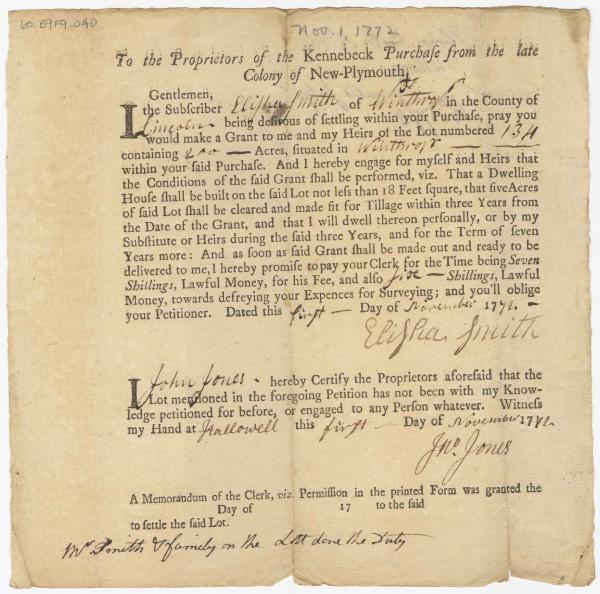 60.E9F9.040
Nov. 1, 1772
To the Proprietors of the Kennebeck Purchaſe from the late
Colony of New-Plymouth.
Gentlemen,
I the Subſcriber Elisha Smith of Winthrop in the County of
Lincoln being deſirous of ſettling within your Purchaſe, pray you
would make a Grant to me and my Heirs of the Lot numbered 134
containing 200 — Acres, ſituated in Winthrop —
within your ſaid Purchaſe. And I hereby engage for myſelf and Heirs that
the Conditions of the ſaid Grant ſhall be performed, viz. That a Dwelling
Houſe ſhall be built on the ſaid Lot not leſs than 18 Feet ſquare, that five Acres
of ſaid Lot ſhall be cleared and made fit for Tillage within three Years from
the Date of the Grant, and that I will dwell thereon perſonally, or by my
Subſtitute or Heirs during the ſaid three Years, and for the Term of ſeven
Years more: And as ſoon as ſaid Grant ſhall be made out and ready to be
delivered to me, I hereby promiſe to pay your Clerk for the Time being Seven
Shillings, Lawful Money, for his Fee, and alſo six — Shillings, Lawful
Money, towards defreying your Expences for Surveying; and you'll oblige
your Petitioner. Dated this first — Day of November 1772. —
Elisha Smith
I John Jones - hereby Certify the Proprietors aforeſaid that the
Lot mentioned in the foregoing Petition has not been with my Know-
ledge petitioned for before, or engaged to any Perſon whatever. Witneſs
my Hand at Hallowell this first — Day of November 1772.
Jno. Jones
A Memorandum of the Clerk, viz. Permiſſion in the printed Form was granted the
Day of 17 to the ſaid
to ſettle the ſaid Lot.
Mr. Smith & family on the Lott done the Duty